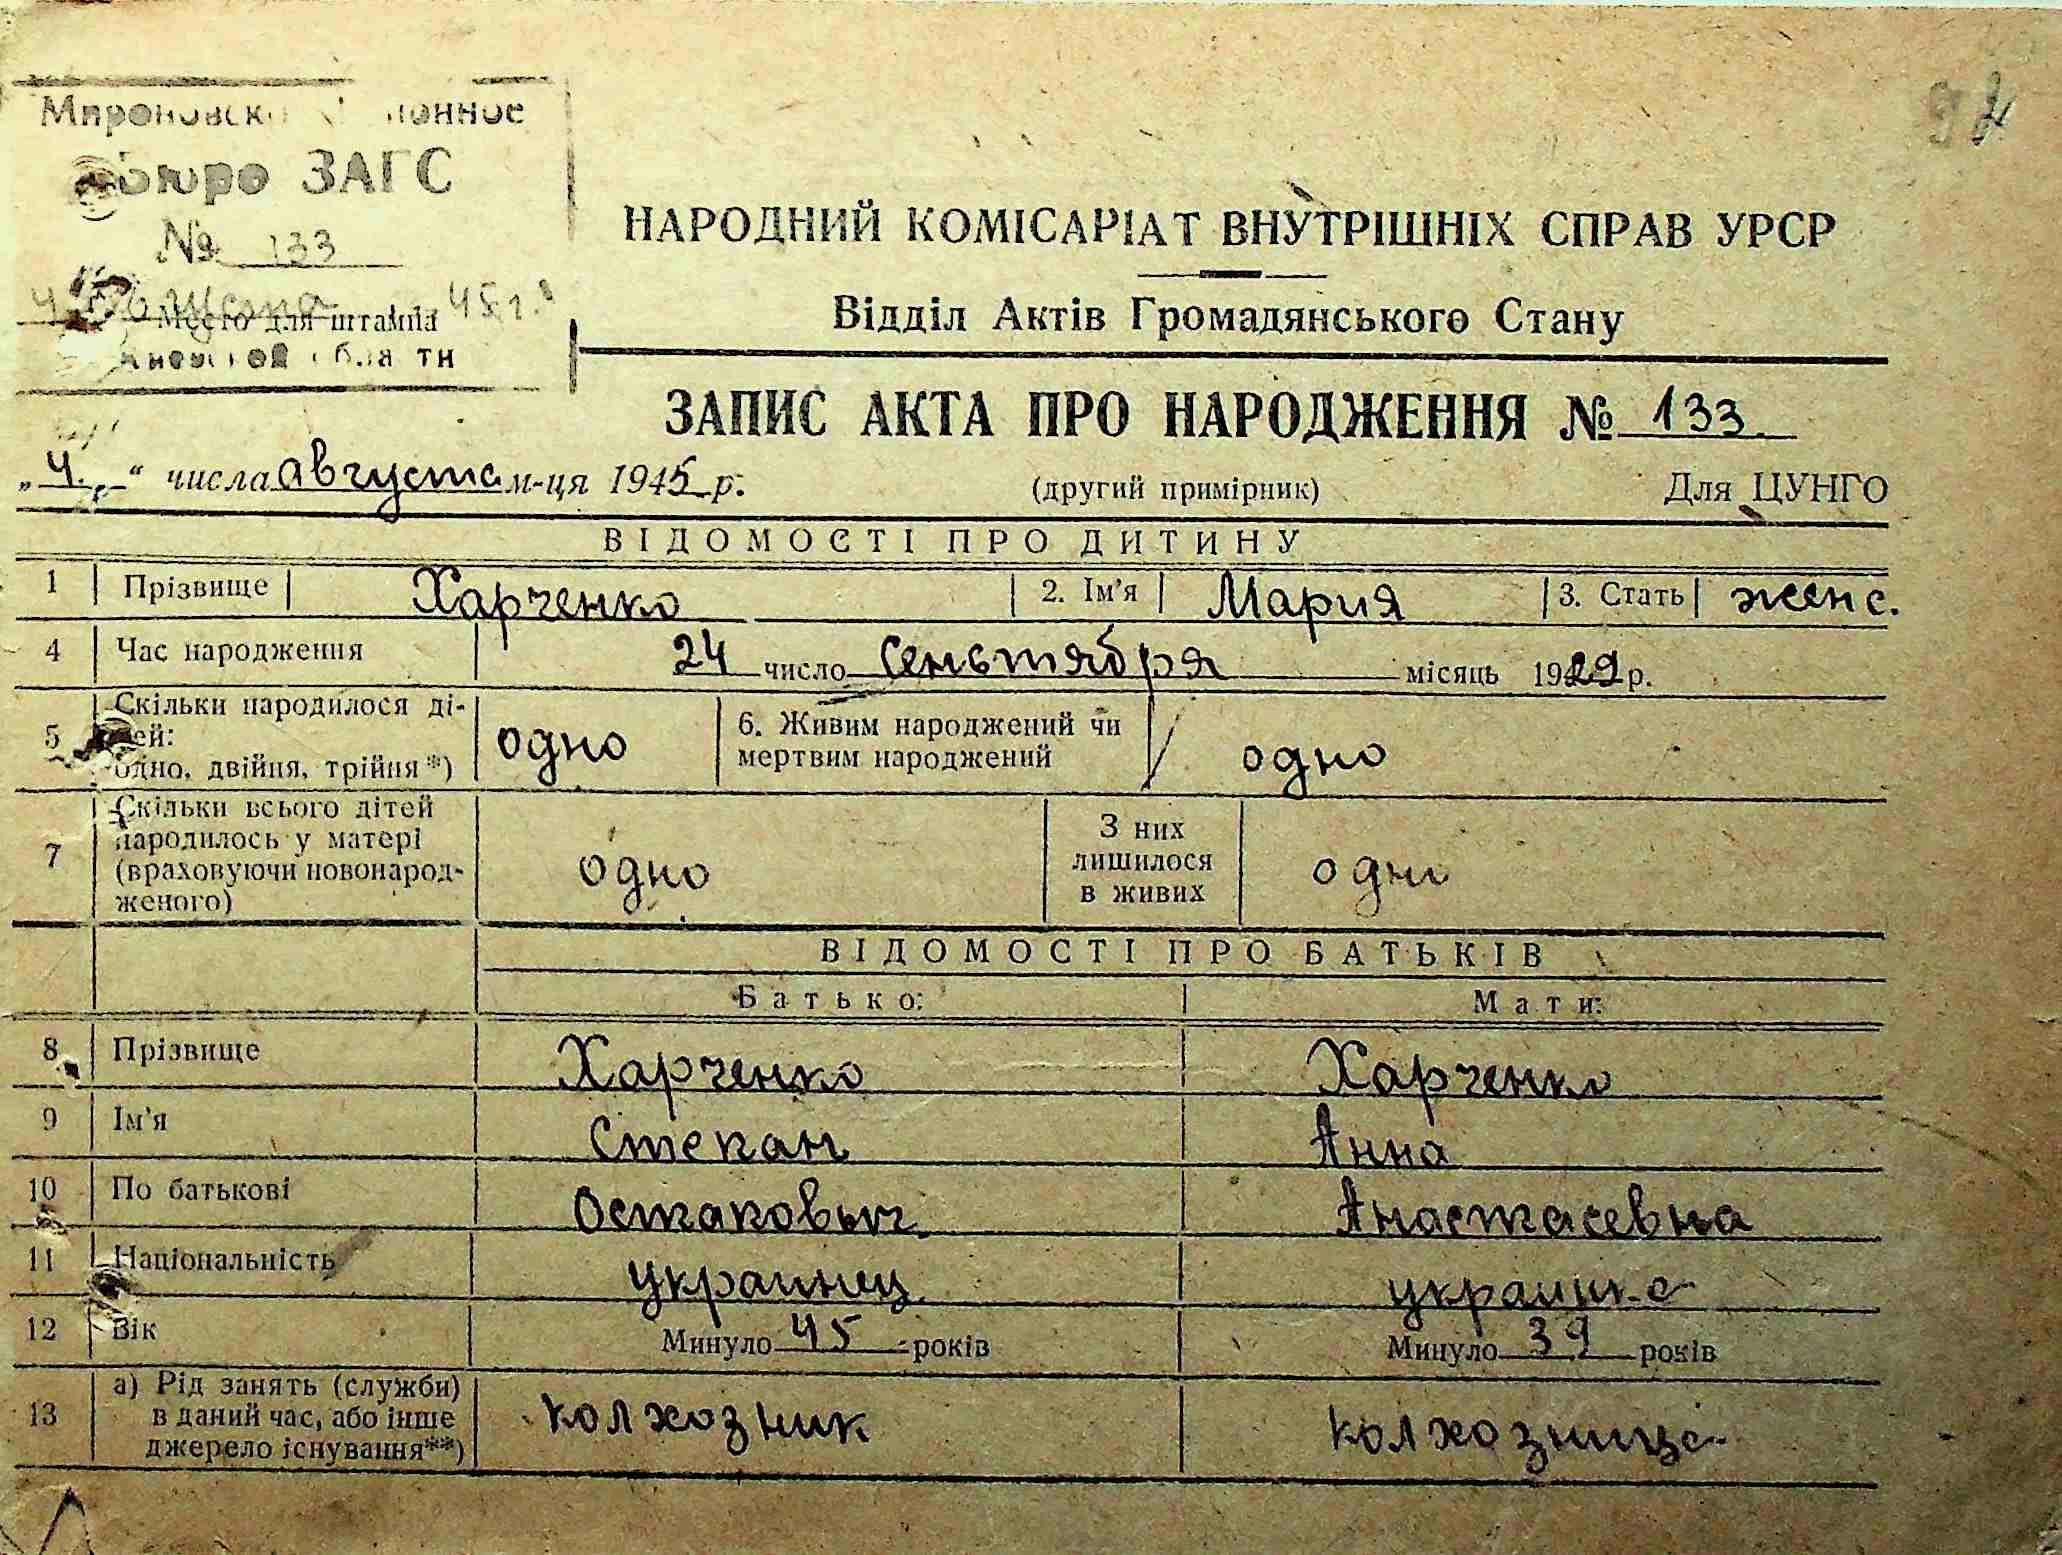 бюро ЗАГС
№ 133
4 августа 45 г.
Место для штампа
НАРОДНИЙ КОМІСАРІАТ ВНУТРІШНІХ СПРАВ УРСР
Відділ Актів Громадянського Стану
ЗАПИС АКТА ПРО НАРОДЖЕННЯ № 133.
„4“ числа августа м-ця 1945 р. (другий примірник) Для ЦУНГО
ВІДОМОСТІ ПРО ДИТИНУ
1 Прізвище Харченко 2. Ім'я Мария 3. Стать женс.
4 Час народження 24 число сеньтября місяць 1929 р.
5 Скільки народилося ді-
тей:
одно, двійня, трійня*) одно
6. Живим народжений чи
мертвим народжений одно
7 Скільки всього дітей
народилось у матері
(враховуючи новонарод-
женого) одно
З них
лишилося
в живих одно
ВІДОМОСТІ ПРО БАТЬКІВ
Батько: Мати:
8 Прізвище Харченко Харченко
9 Ім'я Степан Анна
10 По батькові Остапович Анастасевна
11 Національність украинец украинка
12 Вік Минуло 45 років Минуло 39 років
13 а) Рід занять (служби)
в даний час, або інше
джерело існування**) колхозник колхозница